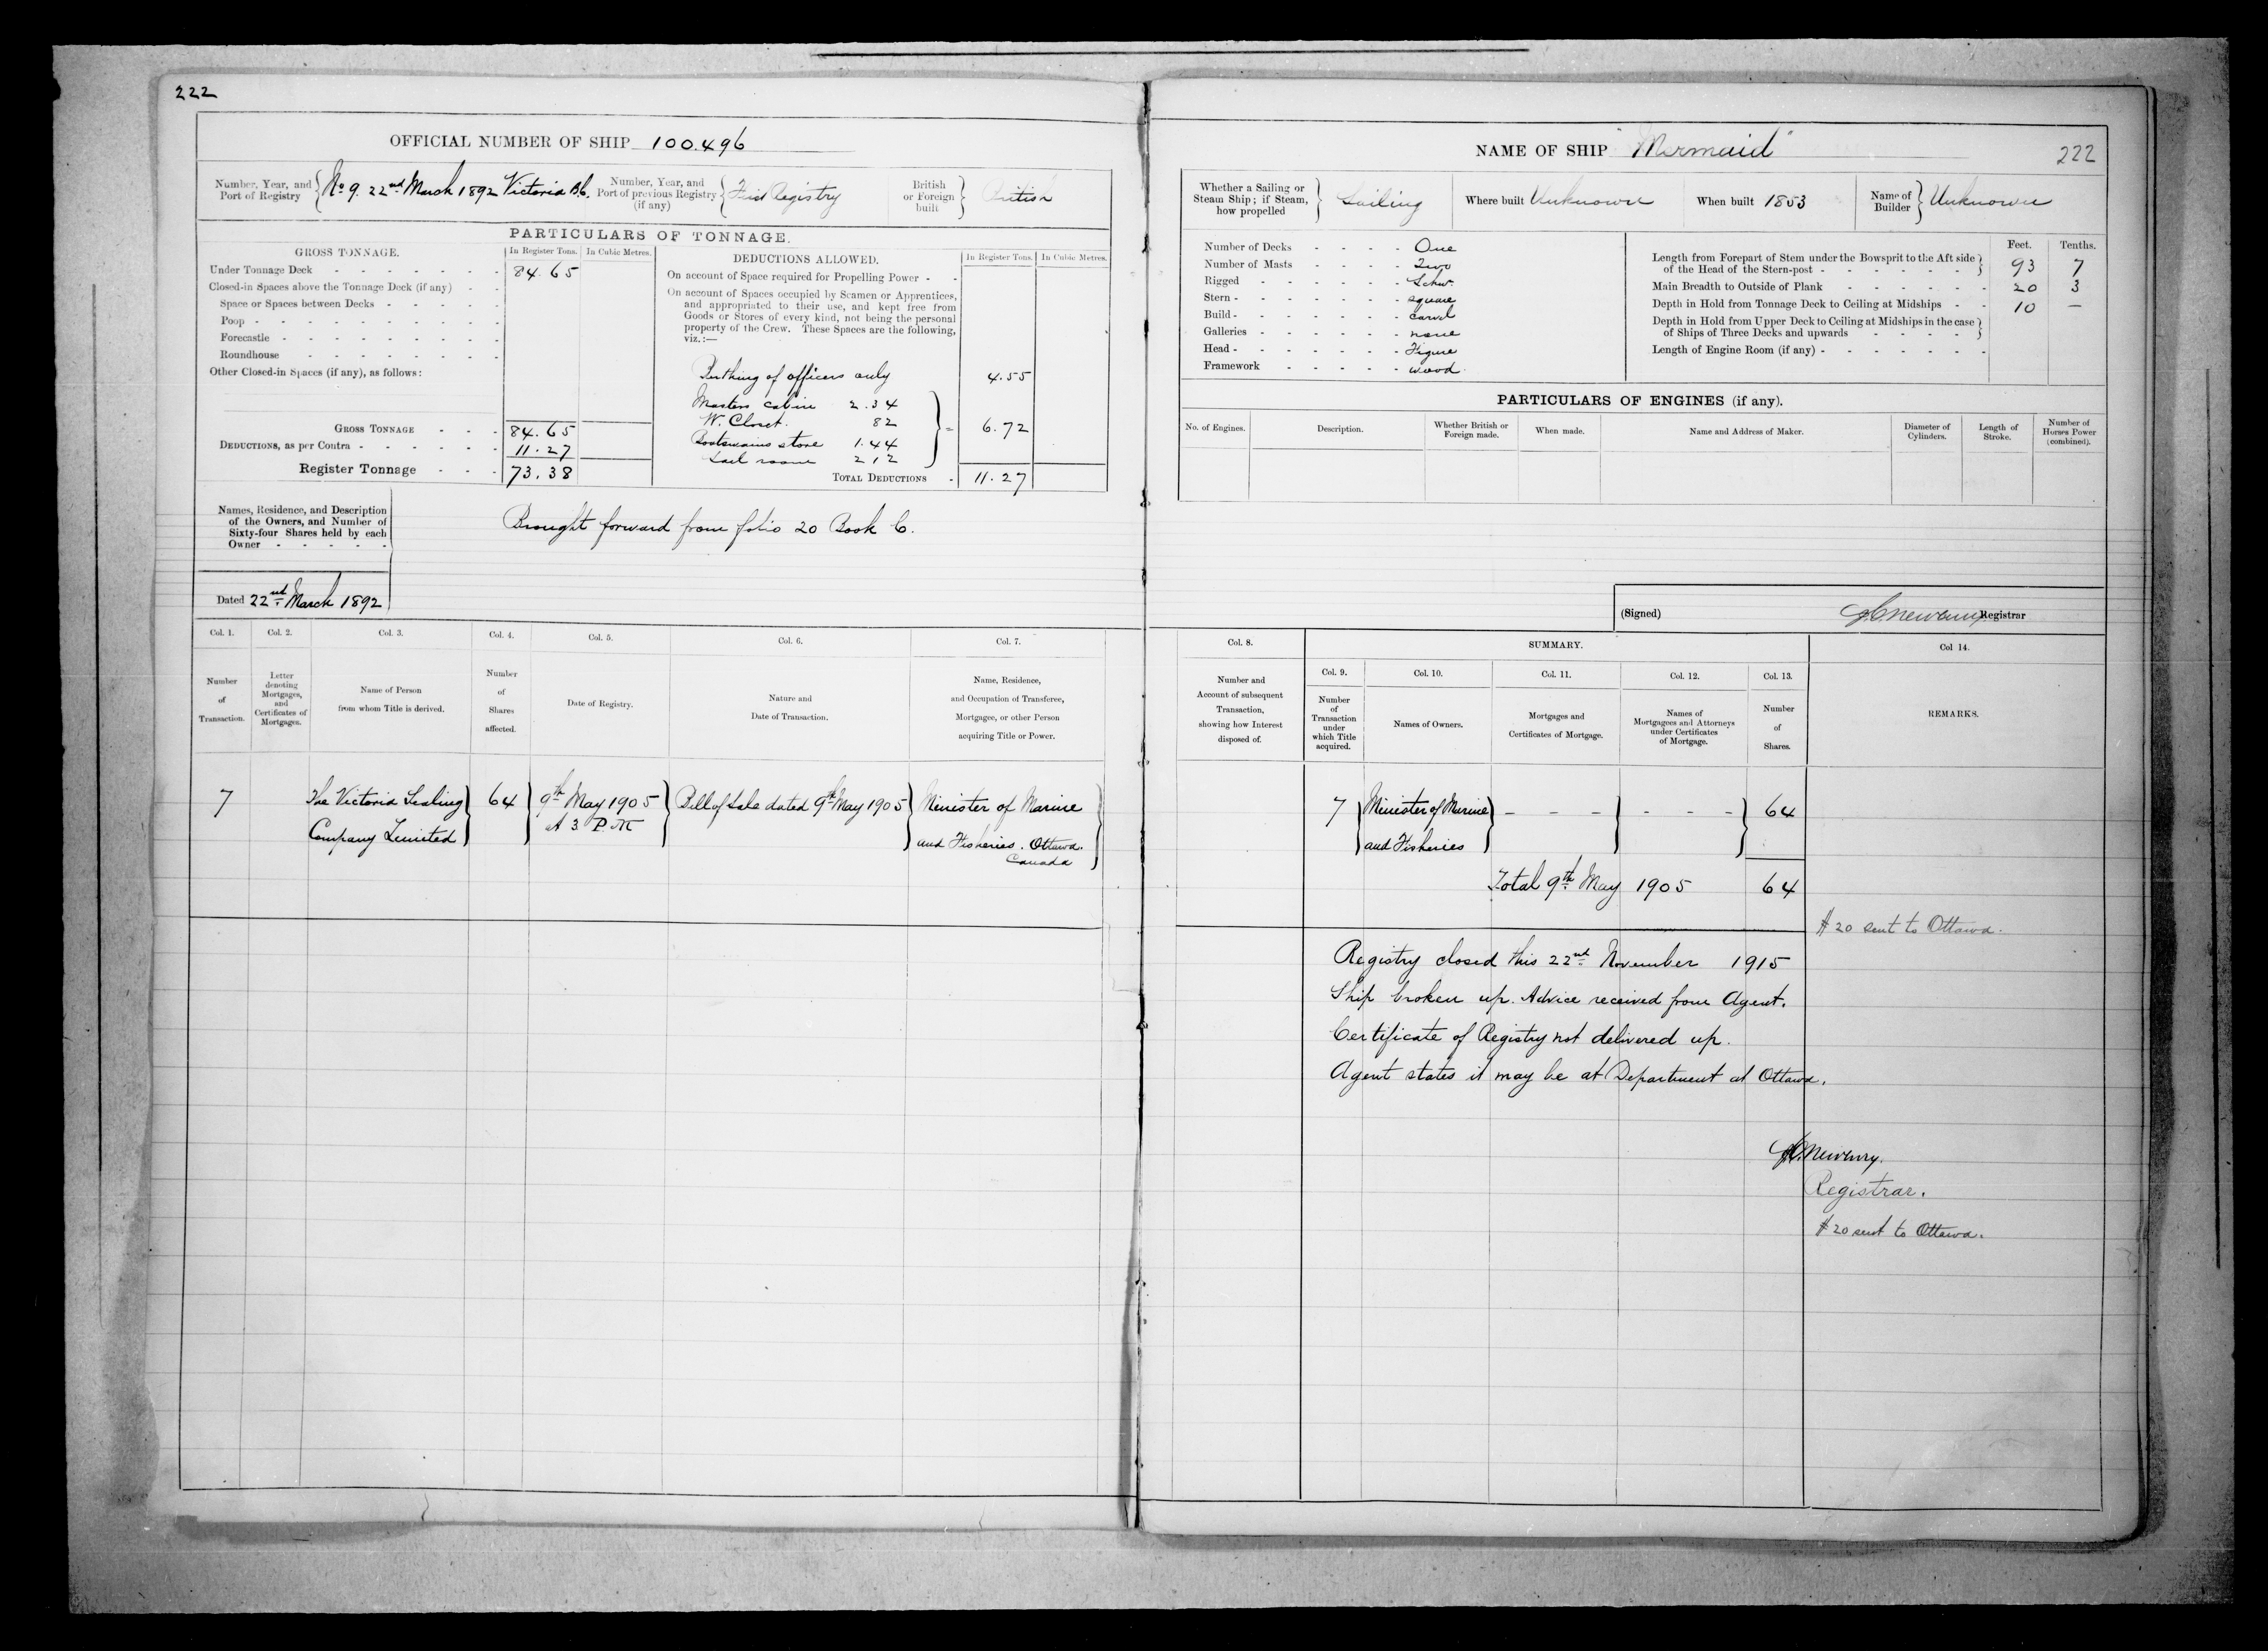 222
OFFICIAL NUMBER OF SHIP 100.496
Number, Year, and Port of Registry { No 9. 22nd March 1892 Victoria B.C.
Number, Year, and Port of previous Registry (if any) { First Registry
British or Foreign built } British
PARTICULARS OF TONNAGE.
GROSS TONNAGE. In Register Tons. In Cubic Metres.
Under Tonnage Deck - - - - - - - 84.65
Closed-in Spaces above the Tonnage Deck (if any) - -
Space or Spaces between Decks - - - -
Poop - - - - - - - - - -
Forecastle - - - - - - - -
Roundhouse - - - - - - -
Other Closed-in Spaces (if any), as follows:
GROSS TONNAGE - - - 84.65
DEDUCTIONS, as per Contra - - - - - - 11.27
Register Tonnage - - - 73.38
DEDUCTIONS ALLOWED. In Register Tons. In Cubic Metres.
On account of Space required for Propelling Power - -
On account of Spaces occupied by Seamen or Apprentices,
and appropriated to their use, and kept free from
Goods or Stores of every kind, not being the personal
property of the Crew. These Spaces are the following,
viz.:—
Berthing of officers only 4.55
Masters cabin 2.34
W. Closet. 82 } = 6.72
Boatswains store 1.44
Sail room 212
TOTAL DEDUCTIONS - 11.27
Names, Residence, and Description
of the Owners, and Number of
Sixty-four Shares held by each
Owner - - - - -
Brought forward from folio 20 Book C.
Dated 22nd March 1892
Col. 1. Col. 2. Col. 3. Col. 4. Col. 5. Col. 6. Col. 7.
Number of Transaction.
Letter denoting Mortgages, and Certificates of Mortgages.
Name of Person from whom Title is derived.
Number of Shares affected.
Date of Registry.
Nature and Date of Transaction.
Name, Residence, and Occupation of Transferee, Mortgagee, or other Person acquiring Title or Power.
7 The Victoria Sealing } 64 } 9th May 1905 } Bill of Sale dated 9th May 1905 } Minister of Marine
Company Limited at 3 P.M and Fisheries. Ottawa.
Canada
NAME OF SHIP "Mermaid" 222
Whether a Sailing or Steam Ship; if Steam, how propelled } Sailing
Where built Unknown
When built 1853
Name of Builder } Unknown
Number of Decks - - - - One
Number of Masts - - - - Two
Rigged - - - - - - Schr.
Stern - - - - - - - square
Build - - - - - - - carvel
Galleries - - - - - - none
Head - - - - - - - Figure
Framework - - - - - wood
Feet. Tenths.
Length from Forepart of Stem under the Bowsprit to the Aft side
of the Head of the Stern-post - - - - - - - } 93 7
Main Breadth to Outside of Plank - - - - - - 20 3
Depth in Hold from Tonnage Deck to Ceiling at Midships - - 10 —
Depth in Hold from Upper Deck to Ceiling at Midships in the case
of Ships of Three Decks and upwards - - - - }
Length of Engine Room (if any) - - - - - - -
PARTICULARS OF ENGINES (if any).
No. of Engines. Description. Whether British or Foreign made. When made. Name and Address of Maker. Diameter of Cylinders. Length of Stroke. Number of Horses Power (combined).
(Signed) Registrar
Col. 8. SUMMARY. Col 14.
Col. 9. Col. 10. Col. 11. Col. 12. Col. 13.
Number and Account of subsequent Transaction, showing how Interest disposed of.
Number of Transaction under which Title acquired.
Names of Owners.
Mortgages and Certificates of Mortgage.
Names of Mortgagees and Attorneys under Certificates of Mortgage.
Number of Shares.
REMARKS.
7 } Minister of Marine } - - - } - - - } 64
and Fisheries
Total 9th May 1905 64
$20 sent to Ottawa.
Registry closed this 22nd November 1915
Ship broken up. Advice received from Agent.
Certificate of Registry not delivered up.
Agent states it may be at Department at Ottawa.
Registrar.
$20 sent to Ottawa.